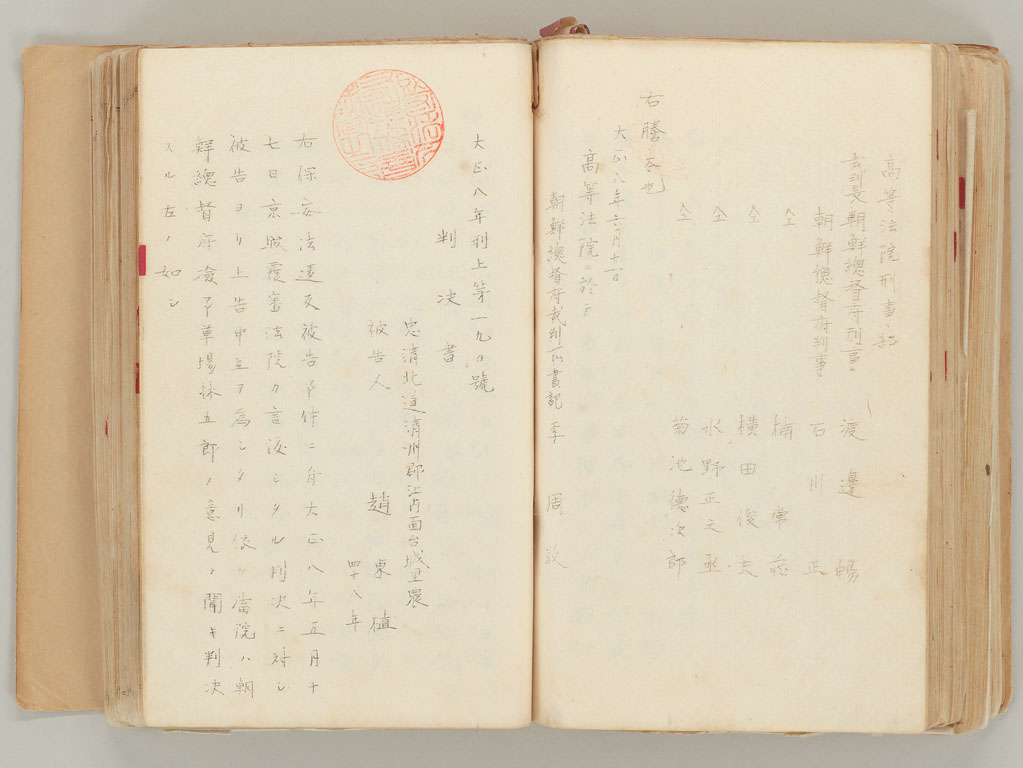 高等法院刑事部
裁判長朝鮮總督府判事 渡邊 暢
朝鮮總督府判事 石川 正
仝 楠 常藏
仝 横田俊夫
仝 水野正之丞
仝 菊池德次郎
右謄本也
大正八年六月十日
高等法院ニ於テ
朝鮮總督府裁判所書記 李 周 敏
大正八年刑上第一九〇號
判決書
忠清北道清州郡江內面台城里農
被告人 趙東植
四十八年
右保安法違反被告事件ニ付大正八年五月十
七日京城覆審法院カ言渡シタル判決ニ対シ
被告ヨリ上告申立ヲ為シタリ依テ當院ハ朝
鮮總督府檢事草場林五郎ノ意見ヲ聞キ判決
スル左ノ如シ